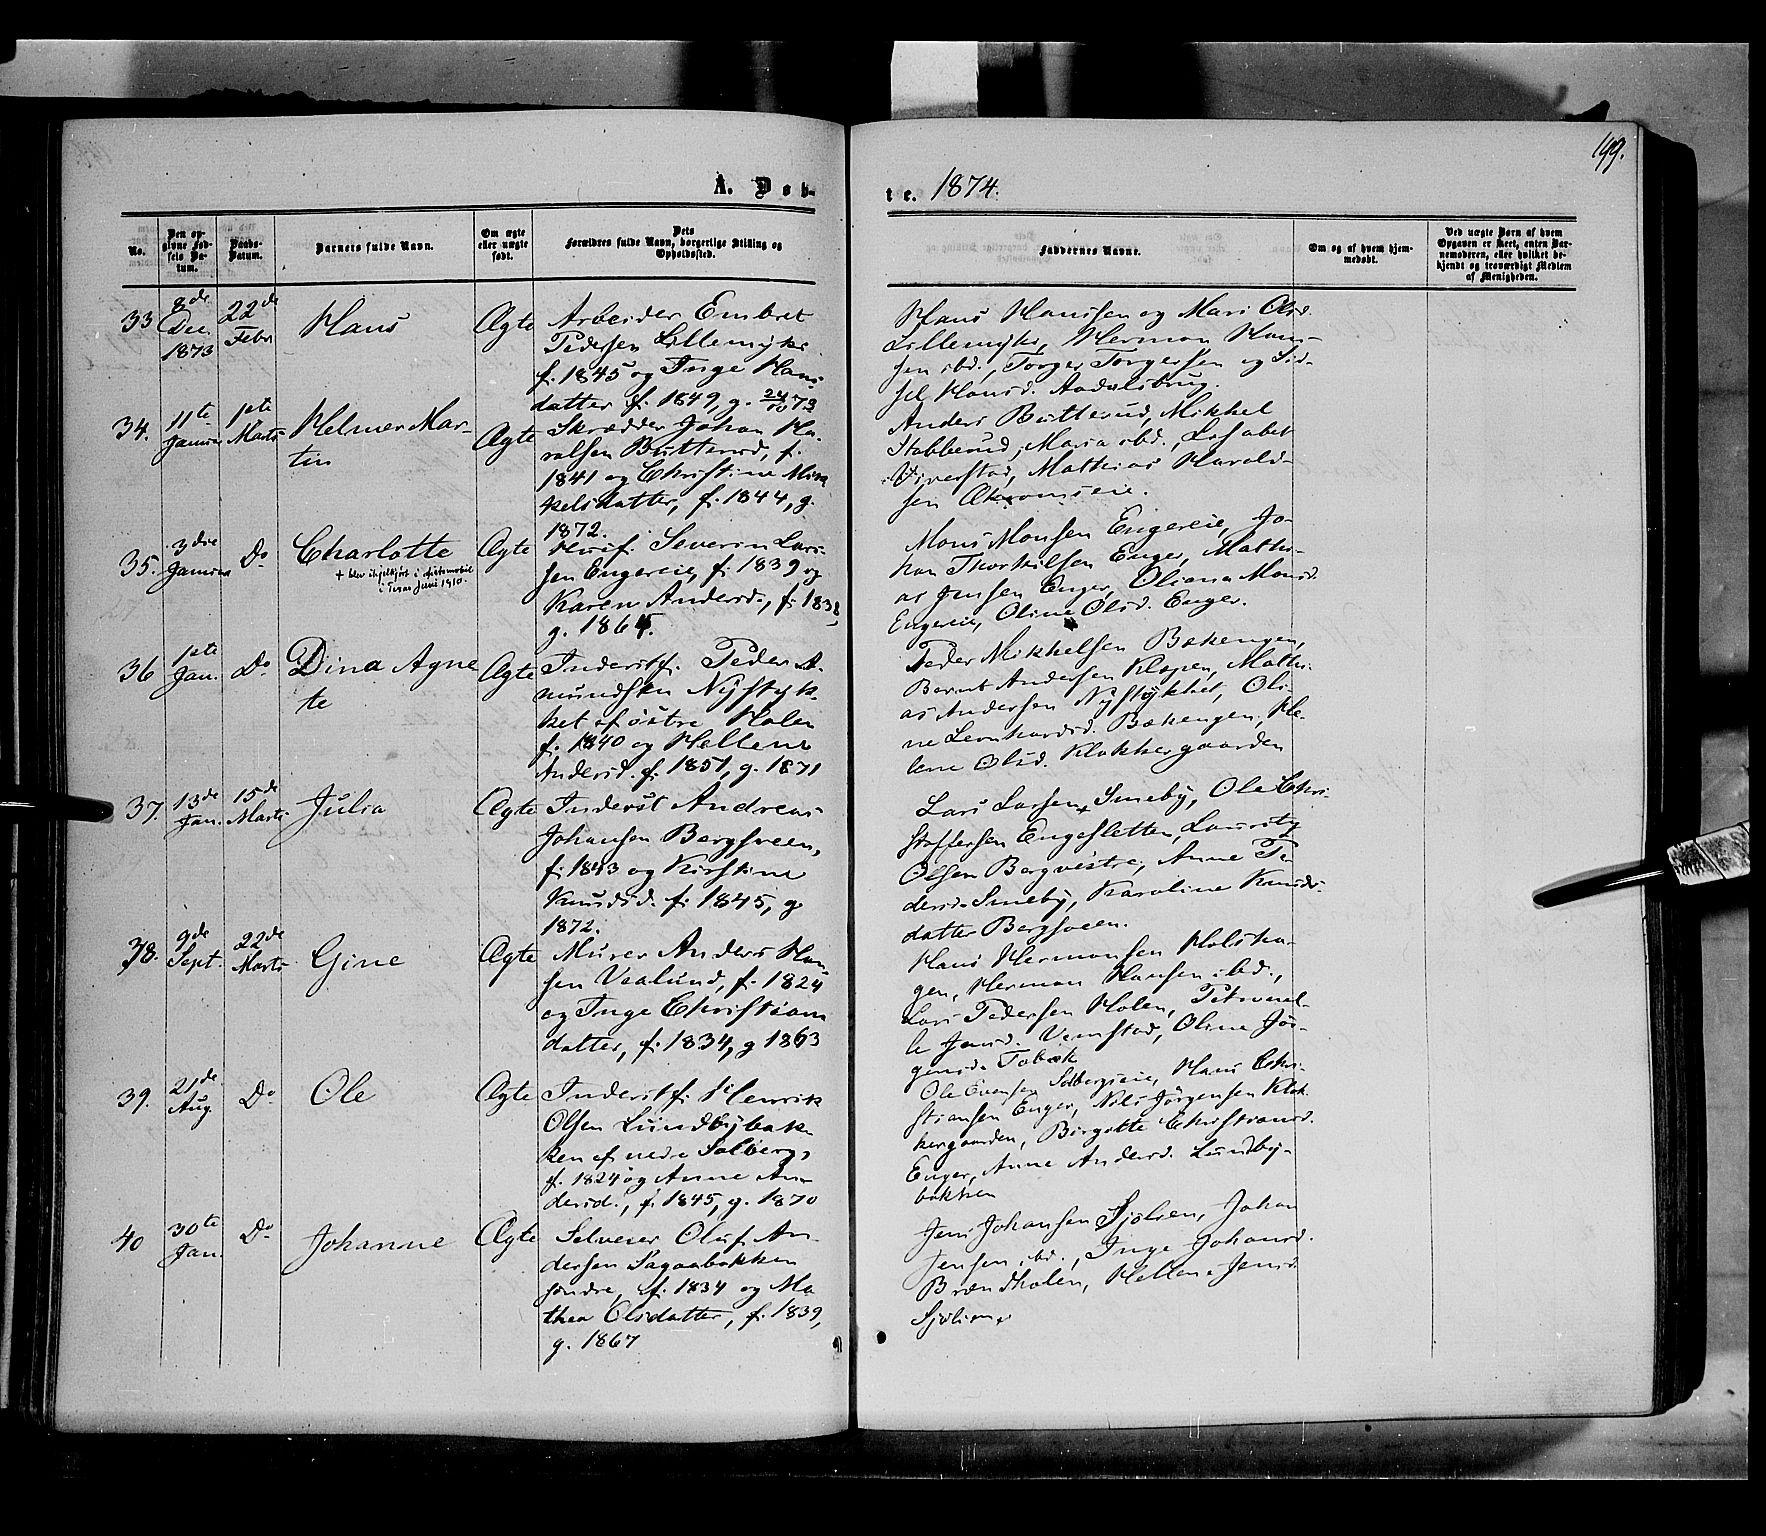 199.
A. Døb-
te. 1874.
No.
Den op-
givne Fød-
sels Da-
tum.
Daabs-
Datum.
Barnets fulde Navn.
Om ægte
eller uægte
født.
Dets
Forældres fulde Navn, borgerlige Stilling og
Opholdssted.
Faddernes Navne.
Om og af hvem hjem-
medøbt.
Ved uægte Børn af hvem
Opgaven er skeet, enten Bar-
nemoderen, eller hvilket be-
kjendt og troværdigt Medlem
af Menigheden.
33
8de
Dec.
1873
22de
Febr.
Hans
Ægte
Arbeider Embret
Pedersen Lillemyhr
f. 1845 og Inge Hans
datter f. 1849, g. 24/10 73
Hans Hanssen og Mari Olsd.
Lillemyhr, Herman Han-
sen ibd., Torger Torgersen og Sid-
sel Hansd. Aadalsbrug.
34.
11te
Januar
1ste
Marts
Helmer Mar-
tin
Ægte
Skrædder Johan Ha-
ralsen Butterud, f.
1841 og Christine Mik
kelsdatter, f. 1844, g.
1872.
Anders Butterud, Mikkel
Stabberud, Maria ibd., Lisabet
Viverstad, Mathias Harald-
sen
35.
3die
Januar
Do
Charlotte
+ blev ihjelkjørt i Automobil
i Juni 1910.
Ægte
Huusf. Severin Lars-
sen Engereie, f. 1839 og
Karen Andersd., f. 1838,
g. 1865.
Mons Monsen Engereie, Jo-
han Thorkilsen Enger, Mathi-
as Jensen Enger, Oliana Monsd.
Engereie, Oline Olsd. Enger.
36
1ste
Jan.
Do
Dina Agne
te
Ægte
Inderstf. Peder A-
mundsen Nystyk-
ket af østre Holen
f. 1840 og Hellene
Andersd. f. 1851, g. 1871
Peder Mikkelsen Bækengen,
Bernt Andersen Kløpen, Mathi-
as Andersen Nystykket, Oli-
ne Leonhardsd. Bækengen, He-
lene Olsd. Klokkergaarden
37.
13de
Jan.
15de
Marts
Julia
Ægte
Inderst Andreas
Johansen Bergsveen,
f. 1843 og Kirstine
Knudsd. f. 1845, g.
1872.
Lars Larsen Smeby, Ole Chri-
stoffersen Engesletten, Lauritz
Olsen Bergvestre, Anne Pe-
dersd. Smeby, Karoline Knuds-
datter Bergsveen.
38.
9de
Sept.
22de
Marts
Gine
Ægte
Murer Anders Han-
sen Vealund, f. 1824
og Inge Christians
datter, f. 1834, g 1863
Hans Hermansen Holsha-
gen, Herman Hansen ibd.,
Lars Pedersen Holen, Petronel-
le Jensd. Vemstad, Oline Jør-
gensd. Tobæk
39.
21de
Aug.
Do
Ole
Ægte
Inderstf. Henrik
Olsen Lundbybak-
ken af nedre Solberg,
f. 1824 og Anne An-
dersd., f. 1845, g. 1870
Ole Evensen Solbergseie, Hans Chri-
stiansen Enger, Nils Jørgensen Klok-
kergaarden, Birgitte Christiansd.
Enger, Anne Andersd. Lundby-
bakken
40
30te
Jan.
Do
Johanne
Ægte
Selveier Oluf An-
dersen Sagaabakken
søndre, f. 1834 og Ma
thea Olsdatter, f. 1839,
g. 1867
Jens Johansen Sjølien, Johan
Jensen ibd., Inge Johansd.
Brændholen, Hellene Jensd
Sjølien.